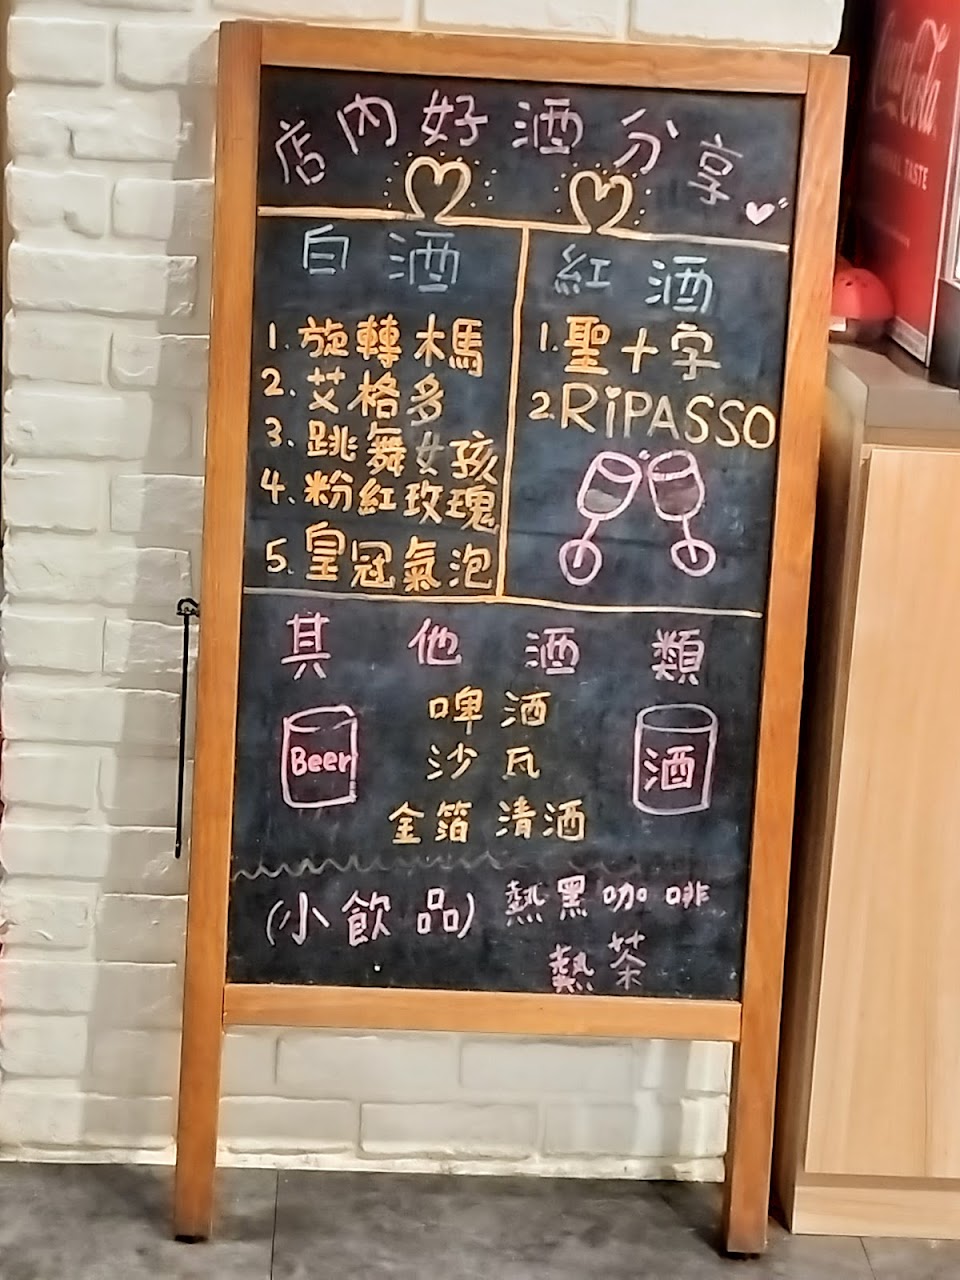 店內好酒分享
白酒
1. 旋轉木馬
2. 艾格多
3. 跳舞女孩
4. 粉紅玫瑰
5. 皇冠氣泡
紅酒
1. 聖十字
2. RiPASSO
其他酒類
啤酒
沙瓦
金箔清酒
Beer
酒
(小飲品) 熱黑咖啡
熱茶
Coca-Cola
ORIGINAL TASTE